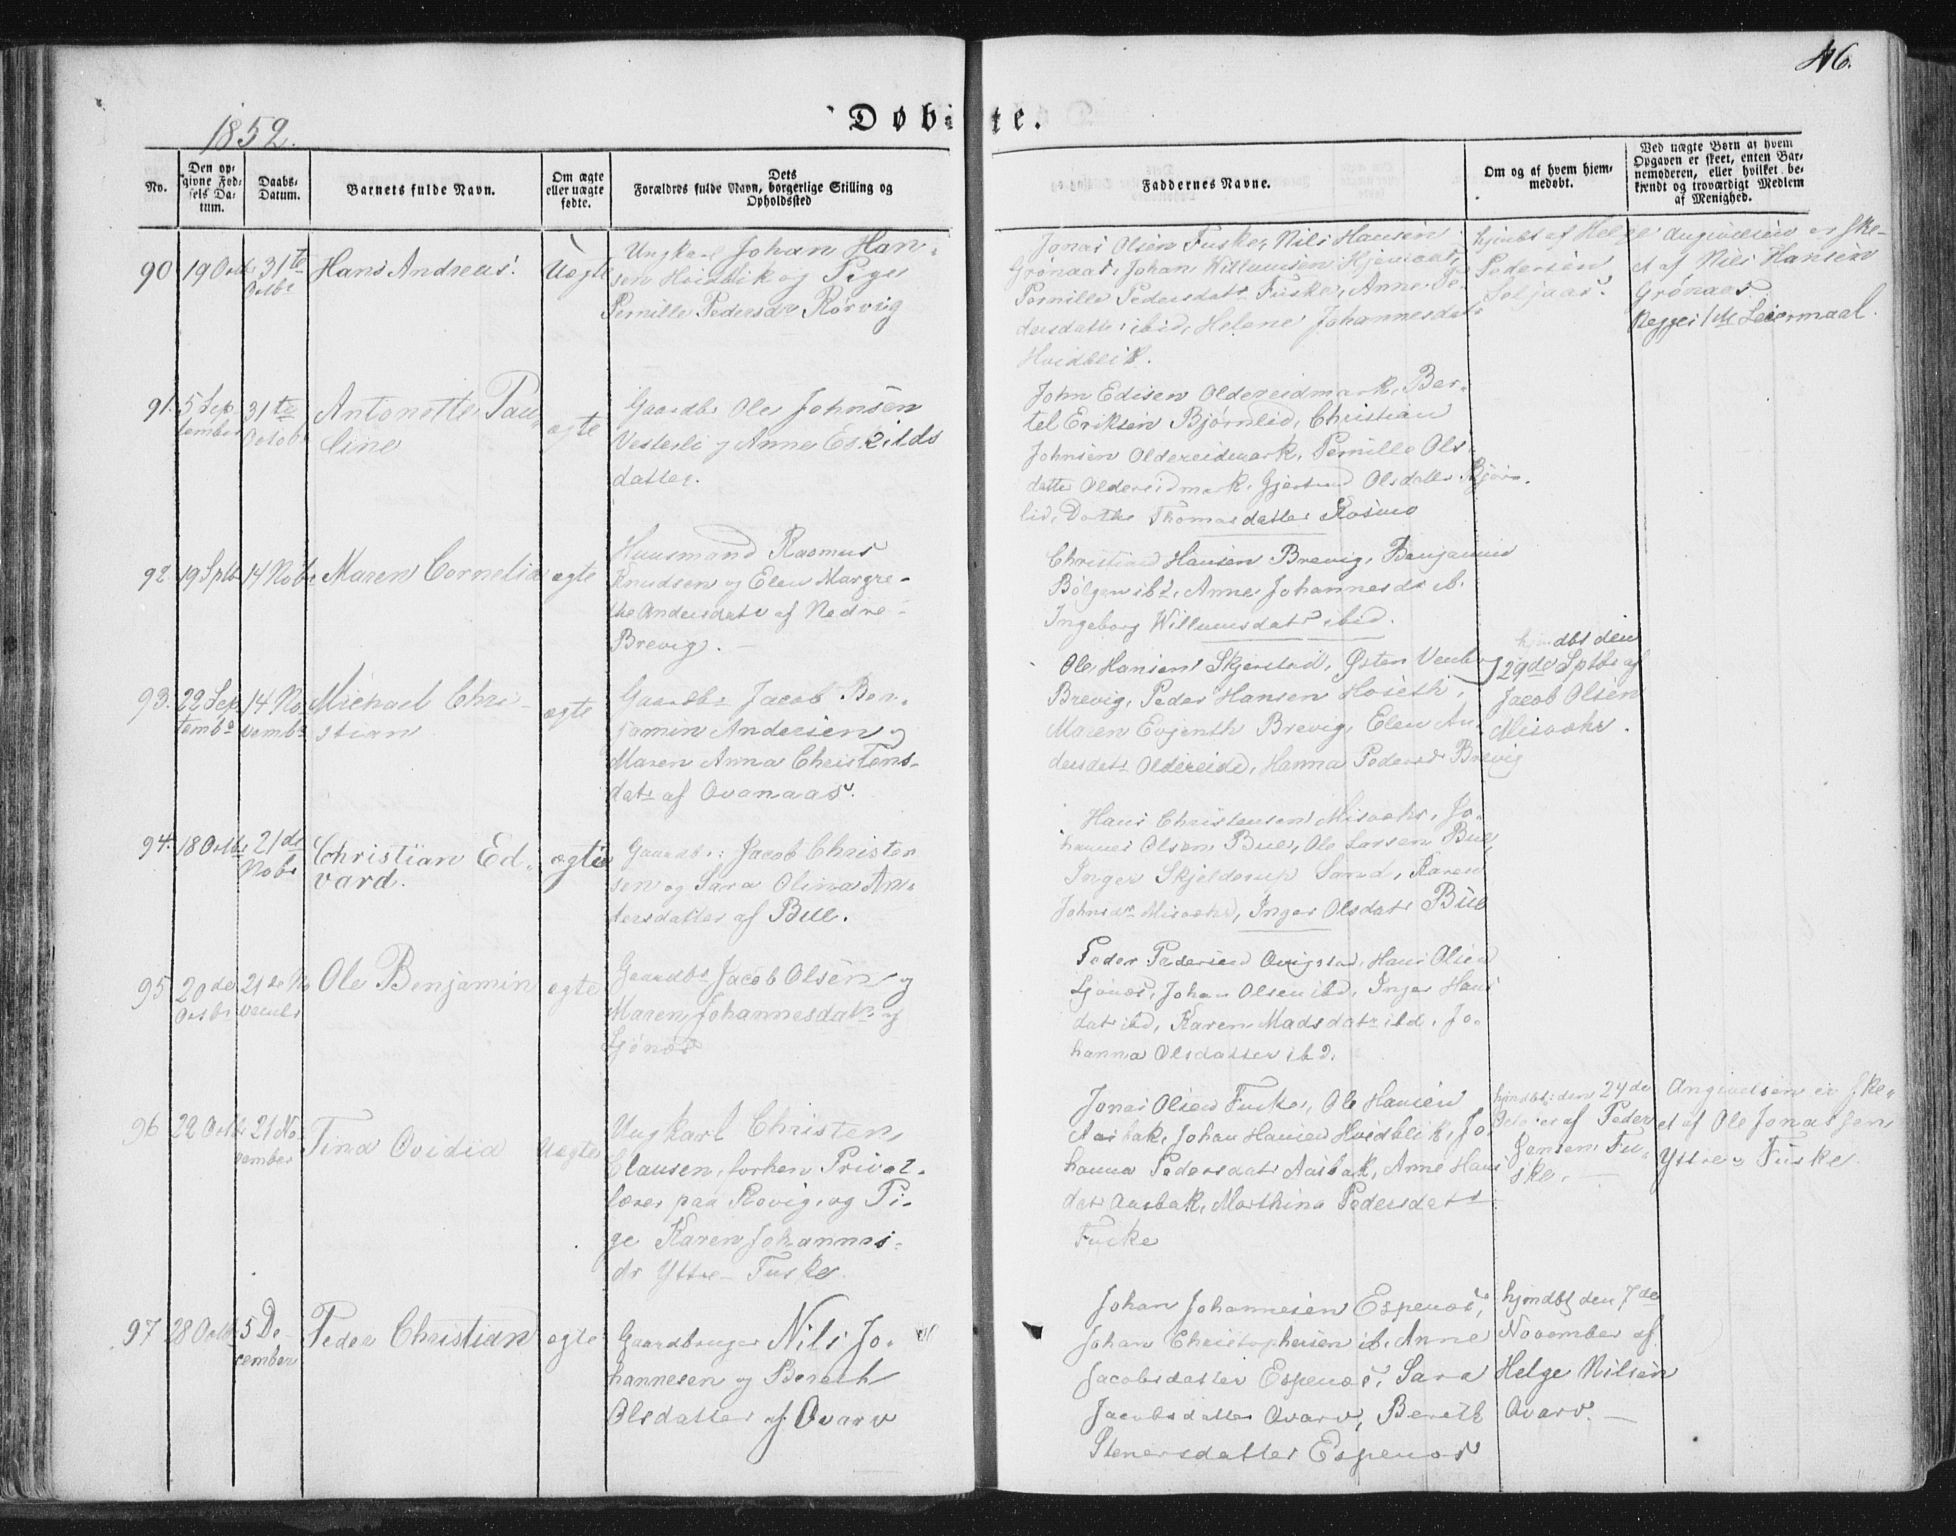 46.
1852.
Døbte.
No.
Den op-
givne Fød-
sels Da-
tum.
Daabs-
Datum.
Barnets fulde Navn.
Om ægte
eller uægte
fødte.
Dets
Forældres fulde Navn, borgerlige Stilling og
Opholdssted
Faddernes Navne.
Om og af hvem hjem-
medøbt.
Ved uægte Børn af hvem
Opgaven er skeet, enten Bar-
nemoderen, eller hvilket be-
kjendt og troværdigt Medlem
af Menighed.
90
31te
Octbr
Hans Andreas.
Uægte
Ungkarl Johan Han-
sen Hvidblik og Pige
Pernille Pedersdr Rørvig
Jonas Olsen Fuske, Nils Hansen
Grønaas, Johan Willumsen
Pernille Pedersdatr Fuske, Anne Pe-
dersdatter ibid, Helene Johannesdatr
Hvidblik.
hjmdbt af Helge
Pedersen
Angivelsen er ske-
et af Nils Hansen
Grønaas
Begges 1ste Leiermaal.
91.
5 Sep-
tember
31te
Octob
Antonette Pau-
line
ægte
Gaardbr Ole Johnsen
Vesterli og Anne Eskilds
datter.
John Edisen Oldereidmark, Ber-
tel Eriksen Bjørnlid, Christian
Johnsen Oldereidmark, Pernille Ols-
datter Oldereidmark, Gjertrud Olsdatter Bjørn-
lid, Thomasdatter Kosmo
92
19 Sptb
14 Nobr
Maren Cornelia
ægte
Huusmand Rasmus
Knudsen og Elen Margre-
the Andersdatr af Nedre
Brevig.
Christian Hansen Brevig, Benjamin
Bølgen ibd, Anne Johannesdr ib.
Ingeborg Willumsdatr ibid.
93.
22 Sep-
tembr
14 No-
vembr
Michael Chri-
stian
ægte
Gaardbr Jacob Ben-
jamin Andersen og
Maren Anna Christens-
datr af Ovanaas.
Ole Hansen Skjerstad, Østen
Brevig, Peder Hansen Hoseth,
Maren Evjenth Brevig, Elen An-
dersdatr Oldereide, Hanna Pedersd Brevig
hjmdbt den
29de Sptbr af
Jacob Olsen
Misvær.
94.
18 Octbr
21de
Nobr
Christian Ed-
vard.
ægte
Gaardbr: Jacob Christen
sen og Sara Olina An-
dersdatter af Bue.
Hans Christensen Misvær, Jo-
hannes Olsen Bue, Ole Larsen Bue,
Inger Skjelderup Sand, Karen
Johnsdr Misvær, Inger Olsdatr Bue
95
20de
Octbr
21de No
vembr
Ole Benjamin
ægte
Gaardbr Jacob Olsen og
Maren Johannesdatr
Ljønes
Peder Pedersen Hans Olsen
Ljønes, Johan Olsen ibd, Inger Hans
datr ibd, Karen Madsdatr ibd, Jo-
hanna Olsdatter ibd.
96
22 Octbr
21 No-
vember
Tina Ovidia
Uægte
Ungkarl Christen
Clausen, forhen Privat-
lærer paa Rovig, og Pi-
ge Karen Johannes-
dr Yttre Fuske.
Jonas Olsen Fuske, Ole Hansen
Aasbak, Johan Hansen Hvidblik, Jo-
hanna Pedersdatr Aasbak, Anne Hans
datr Aasbak, Marthina Pedersdatr
Fuske
hjmdbt: den 24de
af Peder
Jensen Fu-
ske.
Angivelsen er ske-
et af Ole Jonassen
Yttre Fuske
97
28 Octb
5 De-
cember
Peder Christian
ægte
Gaardbruger Nils Jo-
hannesen og Bereth
Olsdatter af Qvarv
Johan Johannesen Espenes,
Johan Christophersen ib. Anne
Jacobsdatter Espenes, Sara
Jacobsdatter Qvarv, Bereth
Stenersdatter Espenes
hjmdbt den 7de
November af
Helge Nilsen
Qvarv.